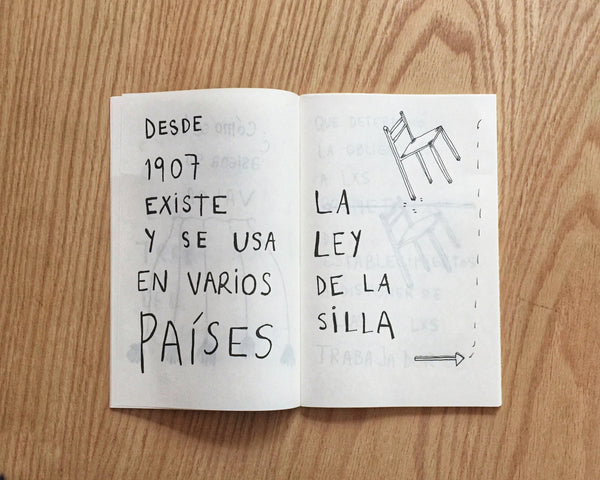 DESDE
1907
EXISTE
Y SE USA
EN VARIOS
PAÍSES
LA
LEY
DE LA
SILLA